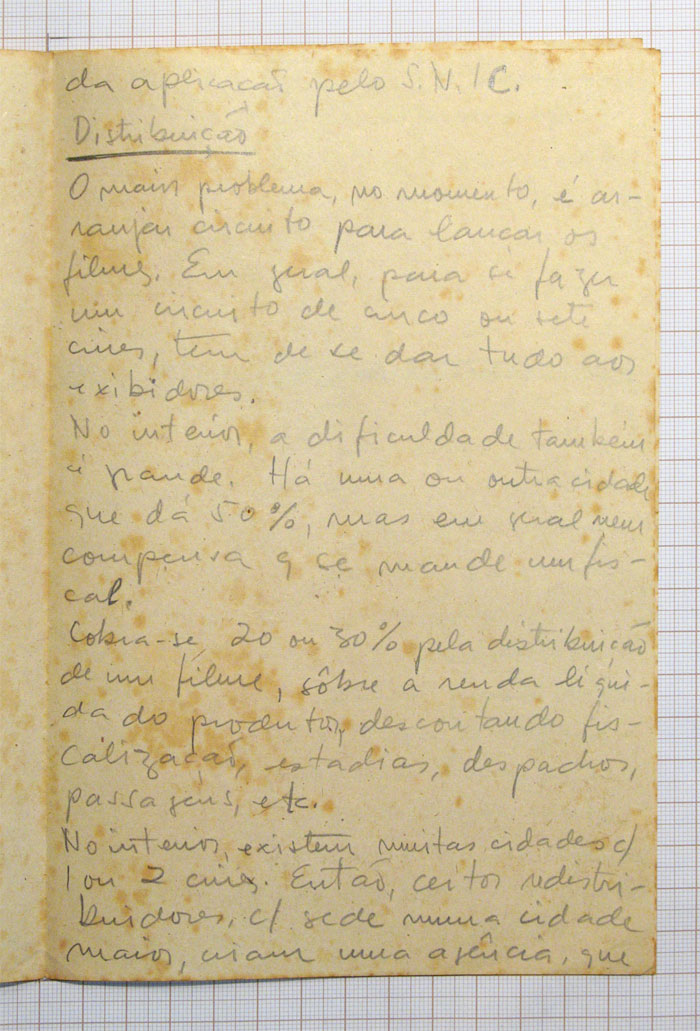 da aplicação pelo S.N.I.C.
Distribuição
O maior problema, no momento, é ar-
ranjar circuito para lançar os
filmes. Em geral, para se fazer
um circuito de cinco ou sete
cines, tem de se dar tudo aos
exibidores.
No interior, a dificuldade também
é grande. Há uma ou outra cidade
que dá 50%, mas em geral nem
compensa q se mande um fis-
cal.
Cobra-se, 20 ou 30% pela distribuição
de um filme, sôbre a renda líqui-
da do produtor, descontando fis-
calização, estadias, despachos,
passagens, etc.
No interior, existem muitas cidades c/
1 ou 2 cines. Então, certos redistri-
buidores, c/ sede numa cidade
maior, criam uma agência, que